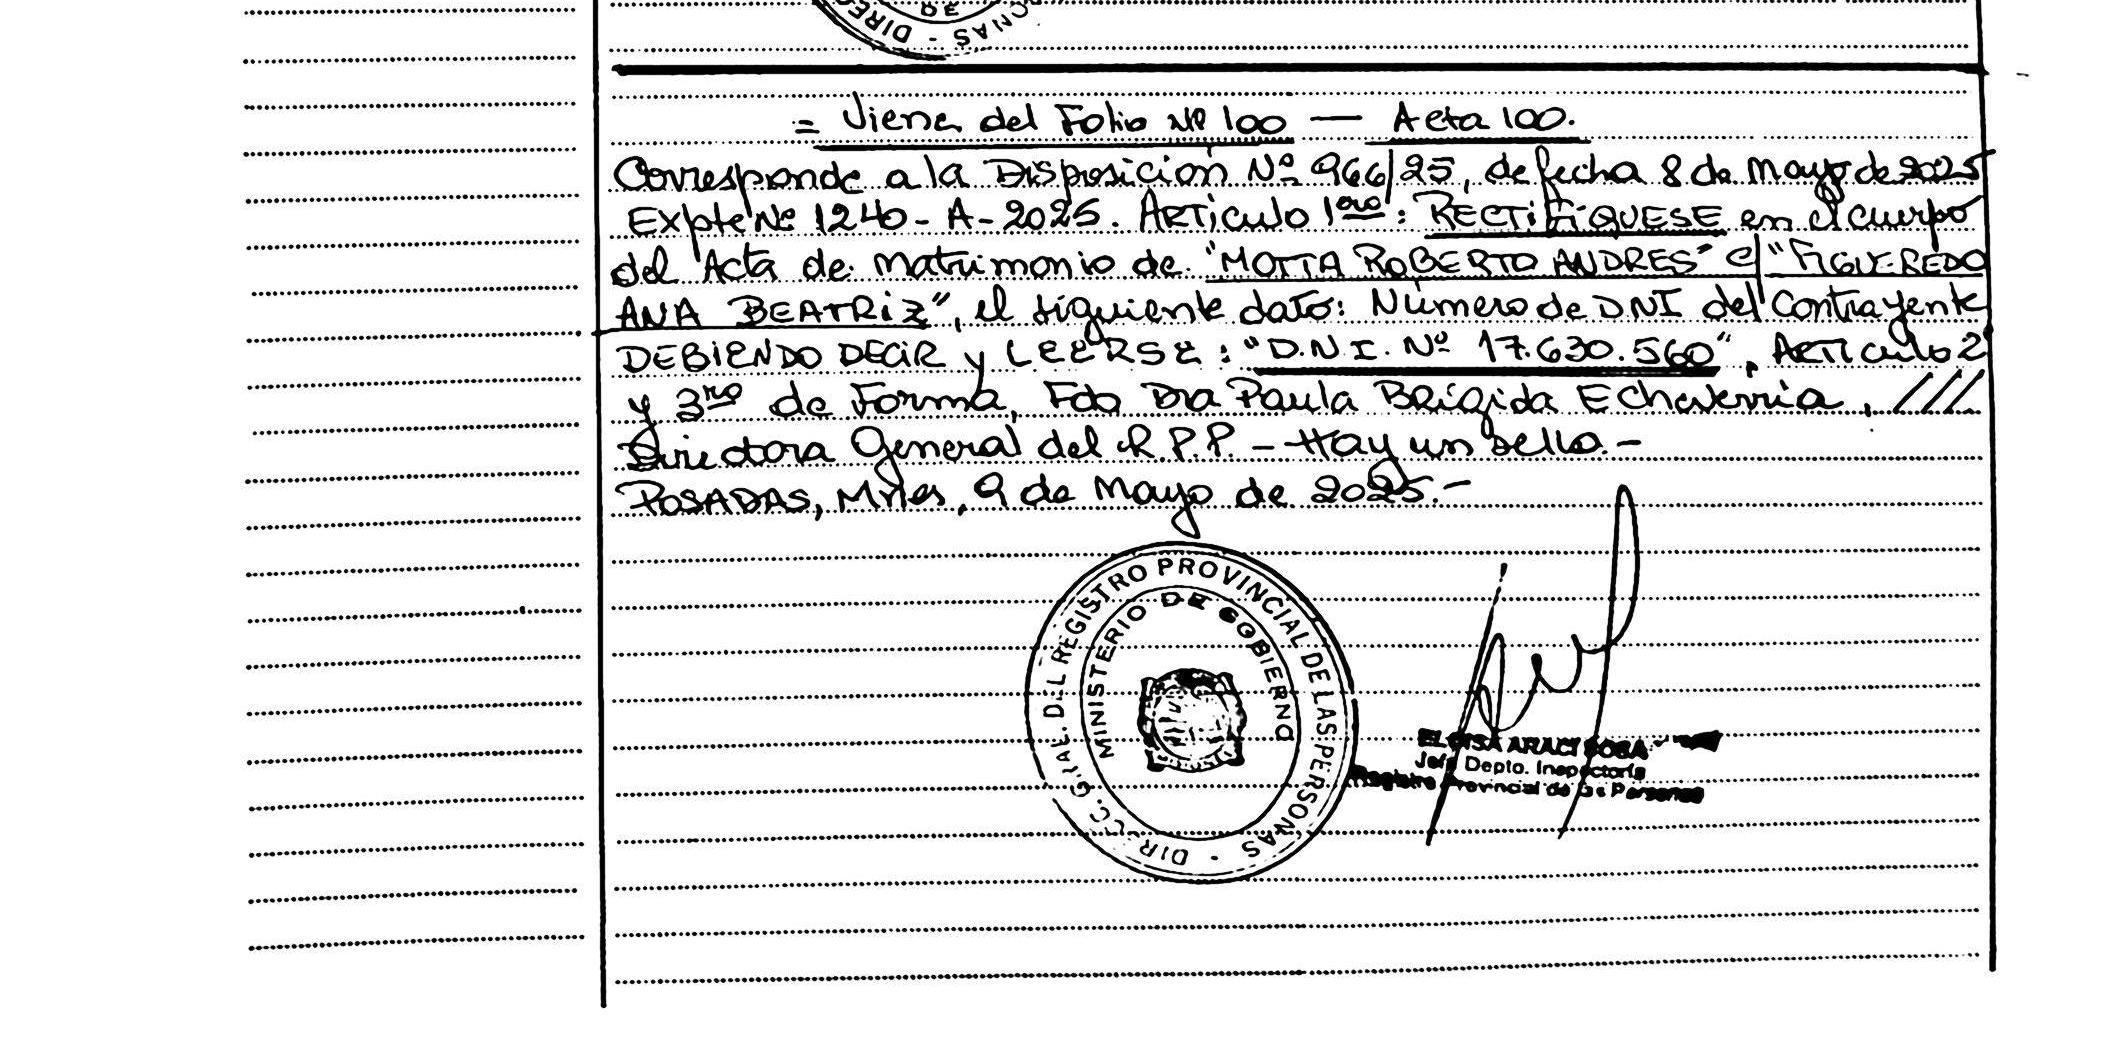 DE
DIREC
ONAS - DIREC
= Viene del Folio Nº 100 — Acta 100.
Corresponde a la Disposición Nº 966/25, de fecha 8 de Mayo de 2025
Expte Nº 1240-A-2025. Articulo 1ero: RECTIFIQUESE en el cuerpo
del Acta de Matrimonio de "MOTTA ROBERTO ANDRES" c/ "FIGUEREDO
ANA BEATRIZ", el siguiente dato: Número de DNI del Contrayente
DEBIENDO DECIR y LEERSE: "D.N.I. Nº 17.630.560", Articulo 2
y 3ro de Forma, Fdo Dra Paula Brigida Echeverria, ///
Directora General del R.P.P. - Hay un sello.-
POSADAS, Mnes, 9 de Mayo de 2025.-
REGISTRO PROVINCIAL DE LAS PERSONAS - DIRECC. GRAL. DEL
MINISTERIO DE GOBIERNO
ELOISA ARACI SOSA
Jefe Depto. Inspectoría
Registro Provincial de las Personas